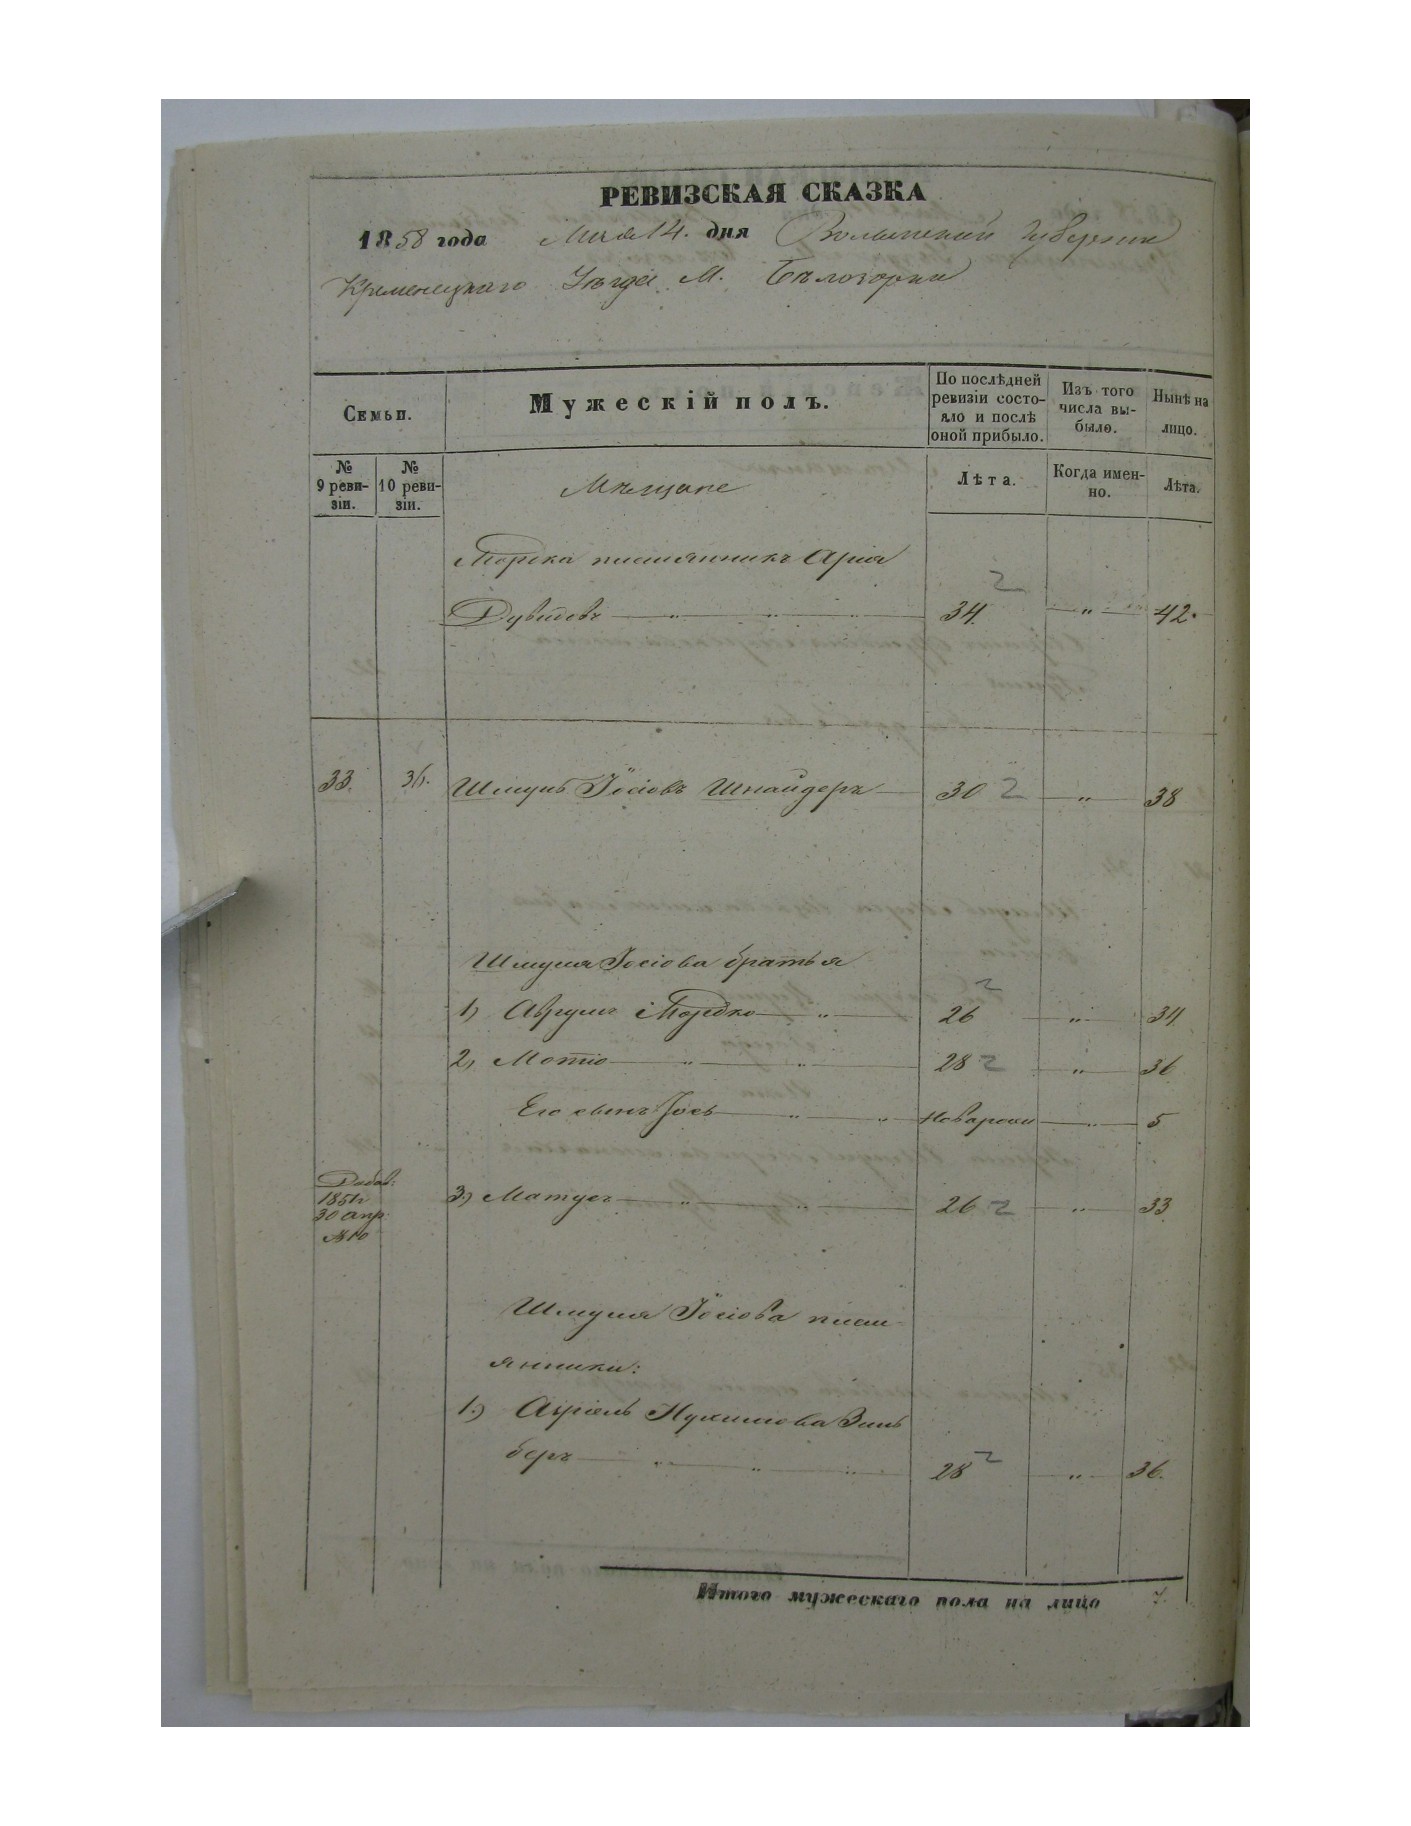 РЕВИЗСКАЯ СКАЗКА
1858 года Мая 14. дня Волынской Губернии
Кременецкаго Уѣзда М. Бѣлозорки
Семьи.
Мужескій полъ.
По послѣдней ревизіи состояло и послѣ оной прибыло.
Изъ того числа выбыло.
Нынѣ на лицо.
№ 9 ревизіи.
№ 10 ревизіи.
Мѣщане
Лѣта.
Когда именно.
Лѣта.
племянникъ Арія
Дувидовъ — „ — „ — „ 34. „ 42.
33. Шмуль Іосіовъ Шнайдеръ — 30 2 — „ — 38
Шмуля Іосіова братья
1) Мордко — „ — 26 2 — „ — 34
2) Мотіо — „ — „ — 28 2 — „ — 36
Его сынъ Іось — „ — „ — — „ — 5
Добав:
1851г
30 апр
№10
3.) Матусъ — „ — „ — 26 2 — „ — 33
Шмуля Іосіова плем
янники:
1.)
беръ — „ — „ — „ 28 2 — „ — 36.
Итого мужескаго пола на лицо 7.